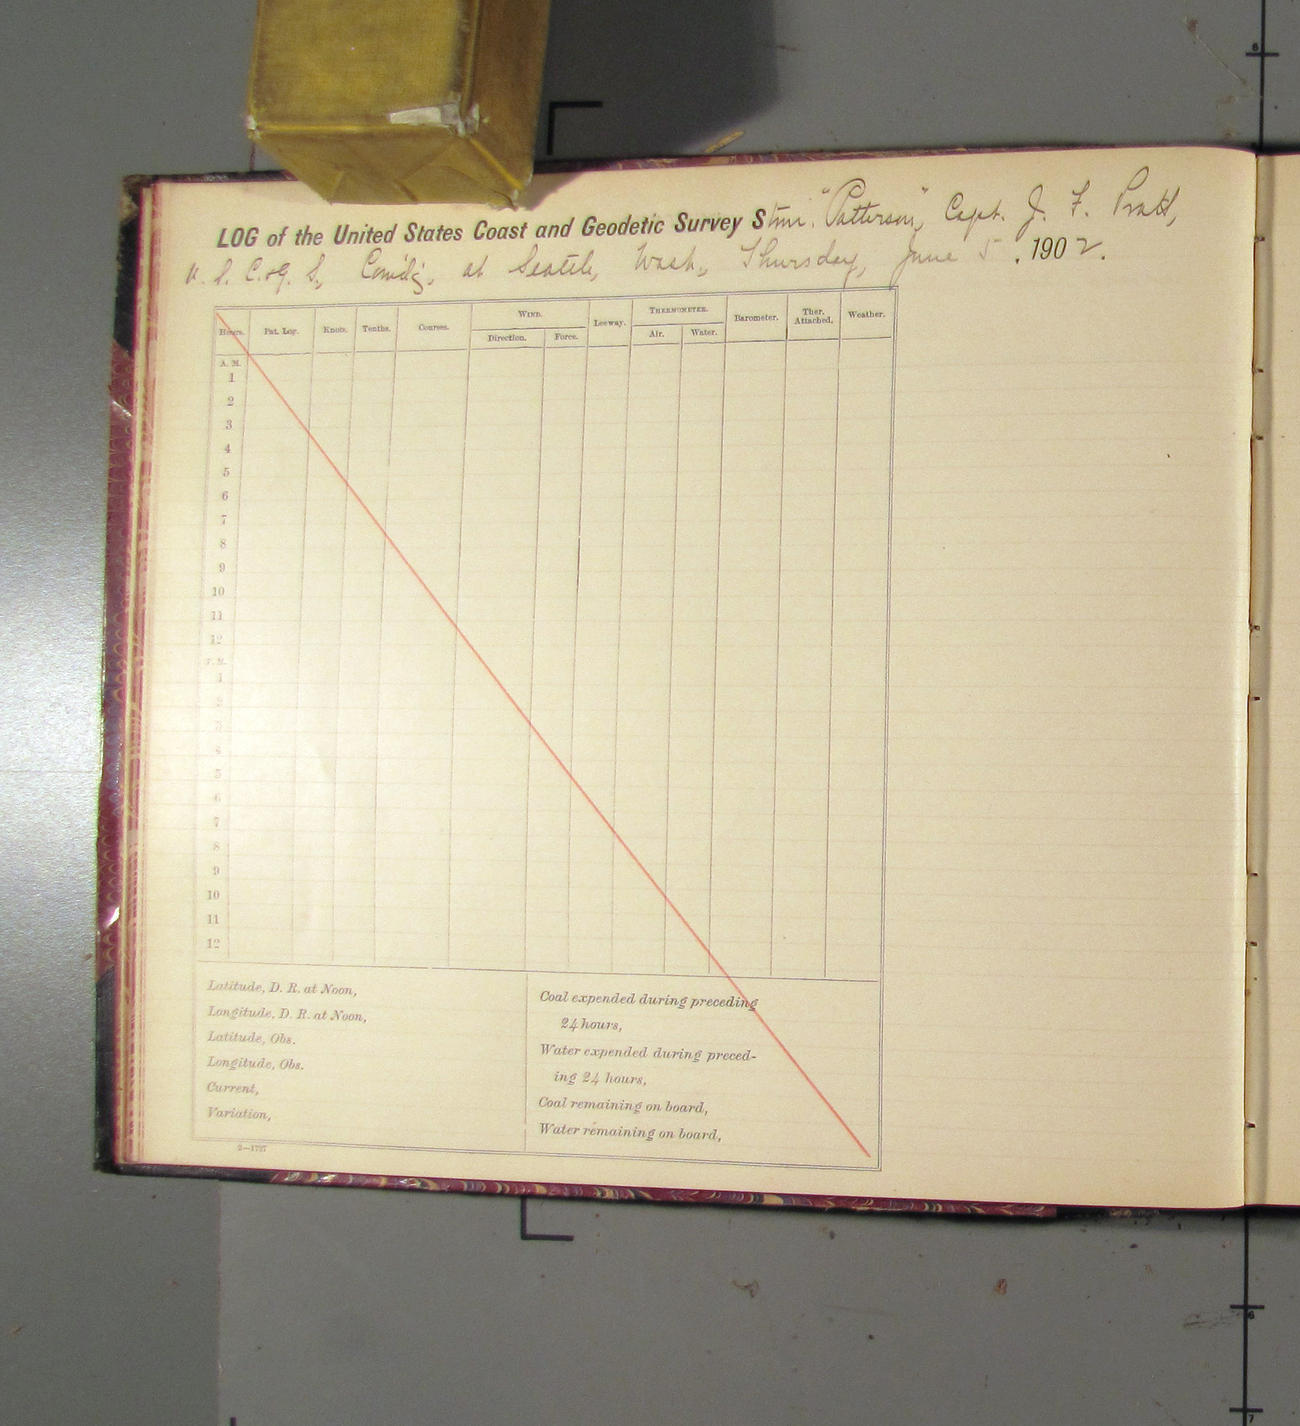 LOG of the United States Coast and Geodetic Survey Stmr. "Patterson", Capt. J. F. Pratt,
U. S. C. & G. S., Com'd'g, at Seattle, Wash., Thursday, June 5, 1902.
Hours. Pat. Log. Knots. Tenths. Courses. WIND. Leeway. THERMOMETER. Barometer. Ther. Attached. Weather.
Direction. Force. Air. Water.
A. M.
1
2
3
4
5
6
7
8
9
10
11
12
P. M.
1
2
3
4
5
6
7
8
9
10
11
12
Latitude, D. R. at Noon,
Longitude, D. R. at Noon,
Latitude, Obs.
Longitude, Obs.
Current,
Variation,
Coal expended during preceding
24 hours,
Water expended during preced-
ing 24 hours,
Coal remaining on board,
Water remaining on board,
2—1727
6
6
7